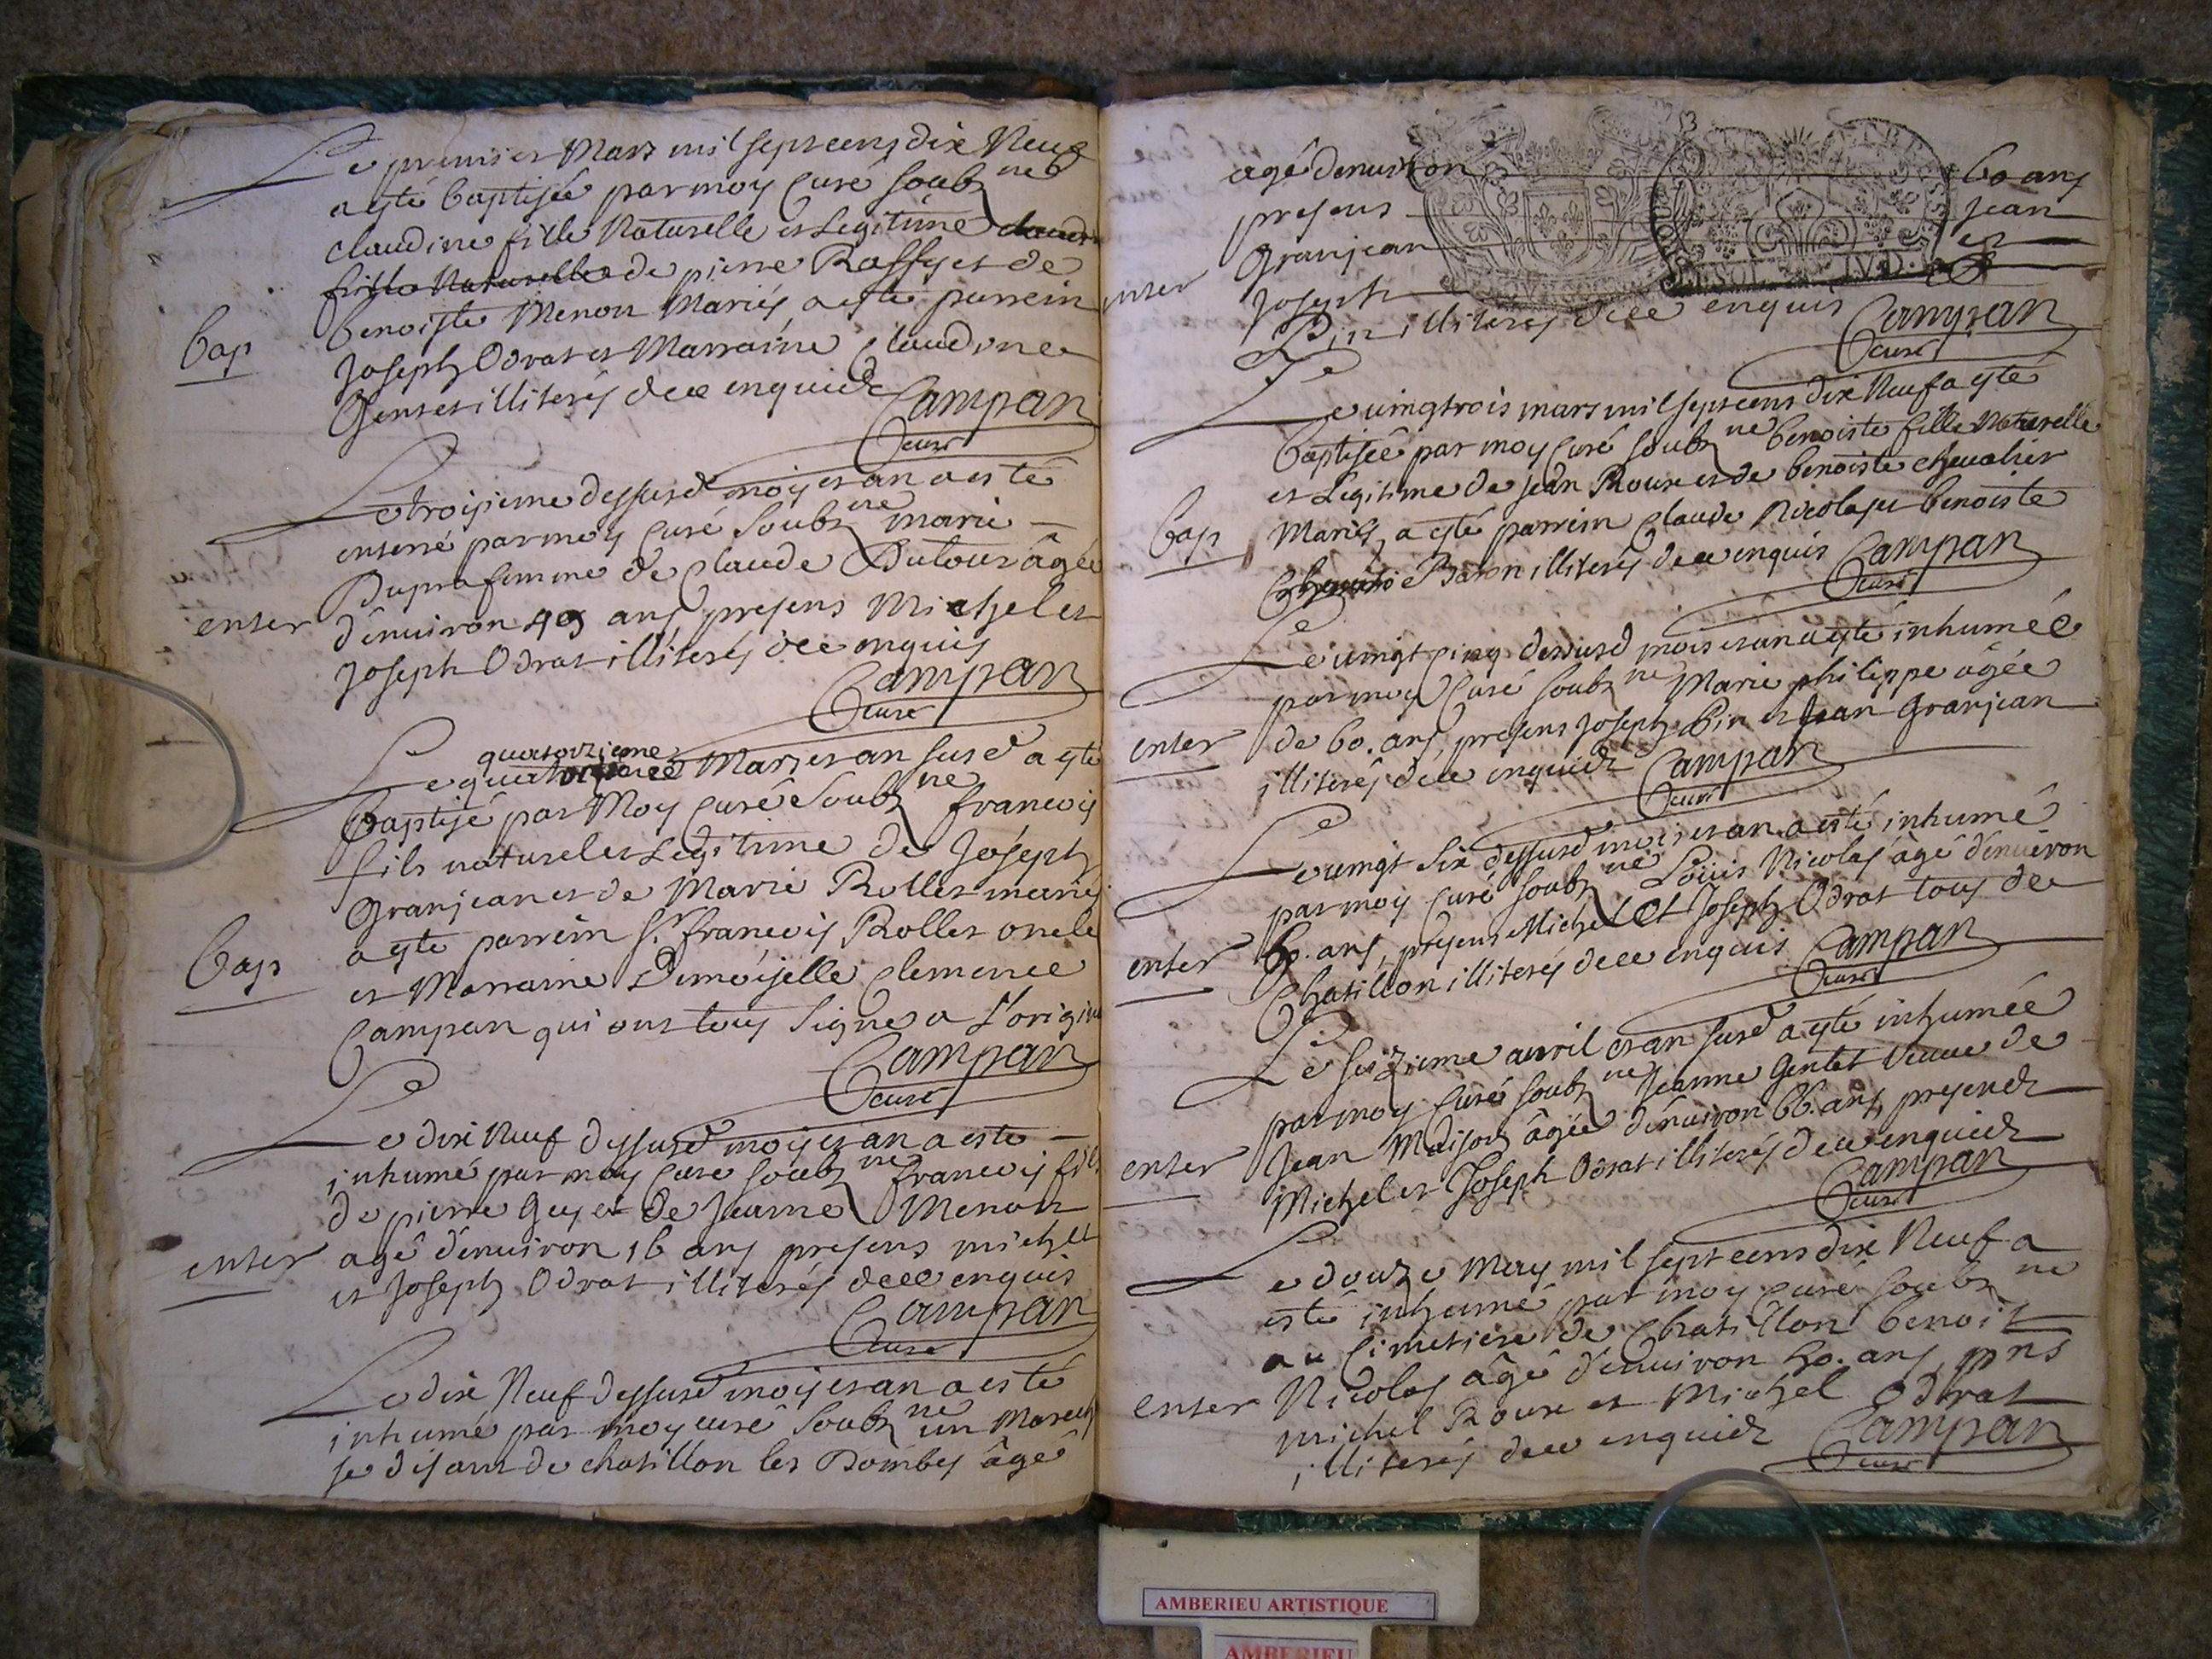 Le premier Mars mil sept cens dix Neuf
a esté baptisée par moy Curé soubz né
Claudine fille Naturelle et Legitime
fille Naturelle de pierre Roffy et de
benoiste Menon Mariés a esté parrein
Bap
Joseph Odrat et Marraine Claudine
Gentet illiterés de ce enquid
Campan
Curé
Le troisieme dessusd mois et an a esté
enterré par moy Curé soubz né marie
Dupra femme de Claude Dutour âgée
enter
d'enuiron 49 ans presens Michel et
Joseph Odrat illiterés de ce enquis
Campan
Curé
quatorzieme
Le Mars et an susd a esté
Baptisé par Moy Curé soubz né francois
fils naturel et Legitime de Joseph
Granjean et de Marie Rollet mariés
a esté parrein Sr francois Rollet oncle
Bap
et Marraine Demoiselle Clemence
Campan qui ont tous signé a L'origin
Campan
Curé
Le dix Neuf dessusd mois et an a esté
inhumé par moy Curé soubz né francois fils
de pierre Guy et de Jeanne Menon
enter
agé d'enuiron 16 ans presens michel
et Joseph Odrat illiterés de ce enquis
Campan
Curé
Le dix Neuf dessusd mois et an a esté
inhumé par moy curé soubz né un
se disant de chatillon les Dombes âgé
agé denuiron 60 ans
presens Jean
Granjean et
enter
Joseph
Pin illiterés de ce enquis Campan
Curé
Le uingtrois mars mil sept cens dix Neuf a esté
Baptisée par moy Curé soubz né benoiste fille Naturelle
et Legitime de Jean Roux et de benoiste Cheualier
Bap
Mariés, a esté parrein Claude Nicolas et benoiste
Baron illiterés de ce enquis Campan
Curé
Le uingt cinq dessusd mois et an a esté inhumée
par moy Curé soubz né Marie philippe âgée
enter
de 60. ans, presens Joseph Pin et Jean Granjean
illiterés de ce enquidz Campan
Curé
Le uingt six dessusd mois et an a esté inhumé
par moy Curé soubz né Loüis Nicolas âgé d'enuiron
enter
60. ans, presens Michel Et Joseph Odrat tous de
Chatillon illiterés de ce enquis Campan
Curé
Le seizieme auril et an susd a esté inhumée
par moy Curé soubz né Jeanne Gentet Veuue de
enter
Jean Maison âgée d'enuiron 66. ans, presendz
Michel et Joseph Odrat illiterés de ce enquidz
Campan
Curé
Le douze May mil sept cens dix Neuf a
esté inhumé par moy Curé soubz né
au Cimetiere de Chatillon benoit
enter
Nicolas âgé d'enuiron 50. ans, pns
michel Roux et Michel Odrat
illiterés de ce enquidz Campan
Curé
AMBERIEU ARTISTIQUE
AMBERIEU